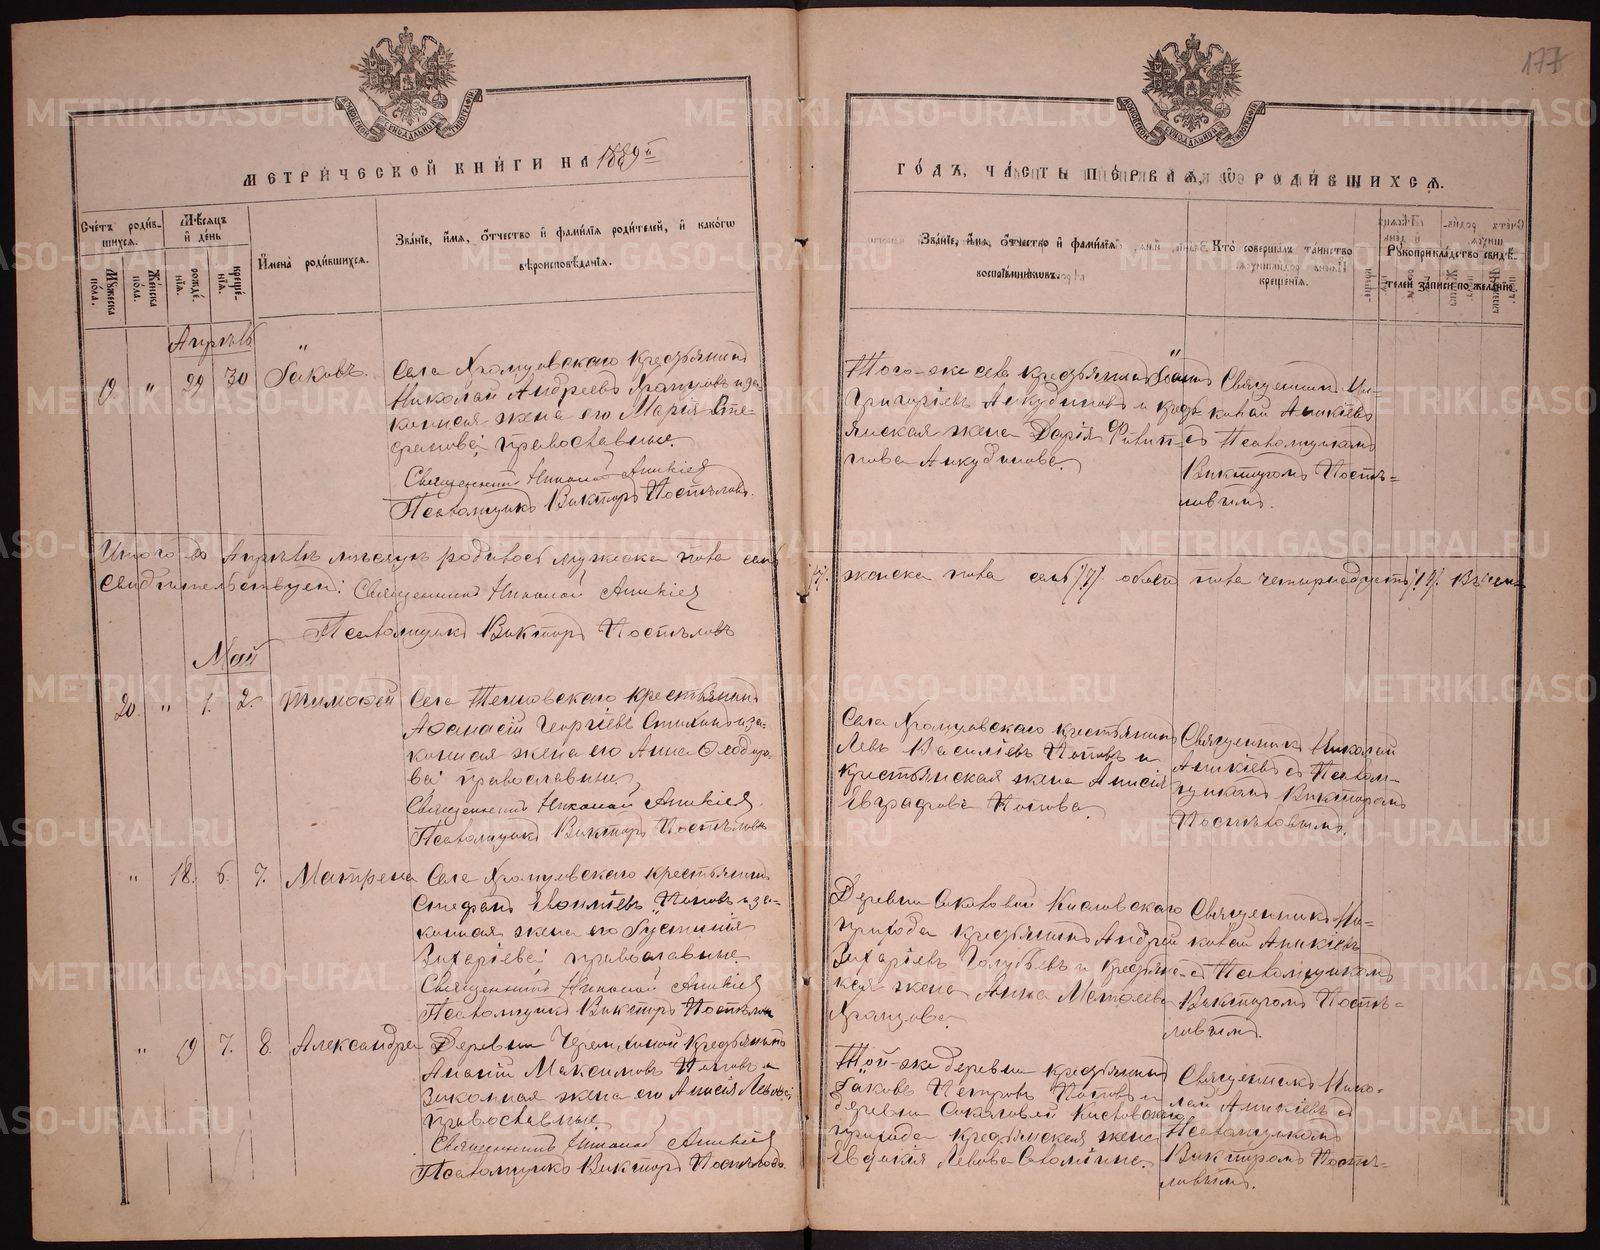 177
МЕТРИ́ЧЕСКОЙ КНИ́ГИ НА 1889й
ГО́ДЪ, ЧА́СТЬ ПЕ́РВАЯ, Ѡ РОДИ́ВШИХСЯ.
Сче́тъ роди́вшихся.
Мѣ́сяцъ и́ де́нь
Му́жеска по́ла.
Же́нска по́ла.
рожде́нія.
креще́нія.
И́мена роди́вшихся.
Зва́ніе, и́мя, о́тчество и́ фами́лія роди́телей, и́ како́гѡ вѣроисповѣ́данія.
Зва́ніе, и́мя, о́тчество и́ фами́лія воспріе́мниковъ.
Кто̀ соверша́лъ та́инство креще́нія.
Рукоприкла́дство свидѣ́телей за́писи по жела́нію.
Апрѣль
19 " 29 30 Іаковъ
Села Храмцовскаго крестьянинъ
Николай Андреевъ Храмцовъ и за-
конная жена его Марія Сте-
фанова; православные.
Священникъ Николай Аникіевъ
Псаломщикъ Викторъ Поспѣловъ.
Того-же села крестьянинъ Іоаннъ
Григоріевъ Анкудиновъ и кресть-
янская жена Дарія Филип-
пова Анкудинова.
Священникъ Ни-
колай Аникіевъ
съ Псаломщикомъ
Викторомъ Поспѣ-
ловымъ.
Итого въ Апрѣлѣ мѣсяцѣ родилось мужеска пола семь /7/. женска пола семь /7/ обоего пола четырнадцать /14/. Въ чемъ
свидѣтельствуемъ: Священникъ Николай Аникіевъ
Псаломщикъ Викторъ Поспѣловъ
Май
20 " 1. 2. Тимофей
Села Темновскаго крестьянинъ
Афанасій Георгіевъ и за-
конная жена его Анна Феодоро-
ва; православные
Священникъ Николай Аникіевъ
Псаломщикъ Викторъ Поспѣловъ
Села Храмцовскаго крестьянинъ
Левъ Василіевъ Поповъ и
крестьянская жена Анисія
Евграфова Попова.
Священникъ Николай
Аникіевъ съ Псалом-
щикомъ Викторомъ
Поспѣловымъ.
" 18. 6. 7. Матрена
Села Храмцовскаго крестьянинъ
Стефанъ Василіевъ Поповъ и за-
конная жена его Іустинія
Захаріева; православные
Священникъ Николай Аникіевъ
Псаломщикъ Викторъ Поспѣловъ
Деревни Соколовой Кисловскаго
прихода крестьянинъ Андрей
Захаріевъ Голубевъ и крестьянс-
кая жена Анна Матфеева
Храмцова.
Священникъ Ни-
колай Аникіевъ
съ Псаломщикомъ
Викторомъ Поспѣ-
ловымъ.
" 19 7. 8. Александра
Деревни Черемховой крестьянинъ
Ананій Максимовъ Поповъ и
законная жена его Анисія Львова;
православные
Священникъ Николай Аникіевъ
Псаломщикъ Викторъ Поспѣловъ.
Той-же деревни крестьянинъ
Іаковъ Петровъ Поповъ и
деревни Соколовой Кисловскаго
прихода крестьянская жена
Евдокія Львова Соломеина.
Священникъ Нико-
лай Аникіевъ съ
Псаломщикомъ
Викторомъ Поспѣ-
ловымъ.
METRIKI.GASO-URAL.RU